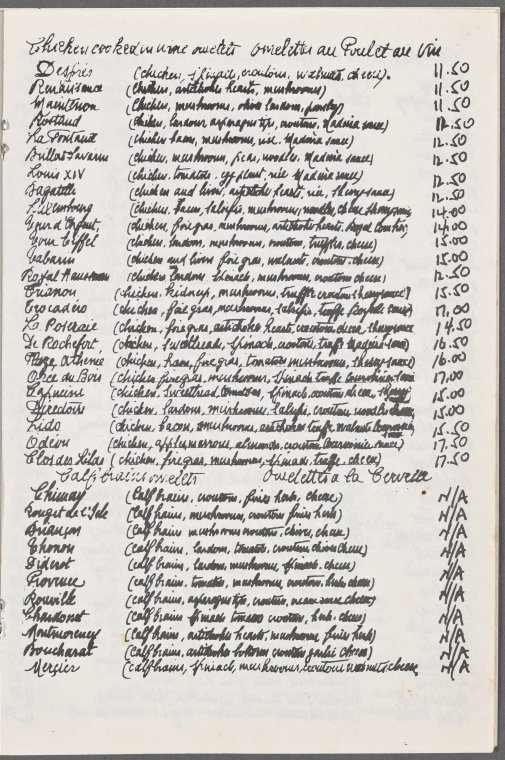 Chicken cooked in wine omelets omelettes au Poulet au Vin
Despres (chicken, spinach, croutons, walnuts, cheese). 11.50
Renaissance (chicken, artichoke hearts, mushrooms) 11.50
Maintenon (chicken, mushrooms, parsley) 11.50
Rostand (chicken, lardour asparagus tips, croutons, Madeira sauce) 12.50
La Fontaine (chicken ham, mushrooms, rice, Madeira sauce) 12.50
Brillat Savarin (chicken, mushrooms, peas, noodles, Madeira sauce) 12.50
Louis XIV (chicken, tomatoes, egg plant, rice Madeira sauce) 12.50
Bagatelle (chicken and liver, artichoke hearts, rice, sherry sauce) 12.50
Luxembourg (chicken, ham, salsifis, mushrooms, noodles, cheese, sherry sauce 14.00
(chicken, foie gras, mushrooms, artichoke hearts, 14.00
Tour Eiffel (chicken, lardons, mushrooms, croutons, truffles, cheese) 15.00
Tabarin (chicken and liver foie gras, walnuts, croutons, cheese) 15.00
Royal Haussman (chicken lardons, spinach, mushrooms, croutons cheese) 12.50
Trianon (chicken, kidneys, mushrooms, truffle croutons sherry sauce) 15.50
Trocadéro (chicken, foie gras, mushrooms, salsifis, truffle 17.00
La Poseraie (chicken, foie gras, artichoke hearts, croutons, cheese, sherry sauce 14.50
Le Rochefort (chicken, sweetbreads, spinach, croutons, truffle Madeira sauce) 16.50
Plaza Athénée (chicken, ham, foie gras, tomatoes mushrooms, sherry sauce) 16.00
Orée du Bois (chicken foie gras, mushrooms, spinach truffle 17.00
Capucine (chicken, sweetbread, tomatoes, spinach, croutons, cheese, sherry 15.00
Directoire (chicken, lardons, mushrooms, salsifis, croutons noodles cheese, 15.00
Lido (chicken, bacon, mushrooms, artichokes truffe, walnuts 15.50
Odéon (chicken, apple, marrons, almonds, croutons sauce) 17.50
Clos des Lilas (chicken, foie gras, mushrooms, spinach, truffe, cheese) 17.50
Calf brains omelets Omelettes a la Cervelle
Chimay (Calf brains, croutons, fines herbs, cheese) N/A
Rouget de L'Isle (Calf brains, mushrooms, croutons fines herbs) N/A
Briançon (Calf brains mushrooms croutons, chives, cheese) N/A
Thonon (Calf brains, lardons, tomatoes, croutons chives cheese) N/A
Diderot (Calf brains, lardons, mushrooms, spinach, cheese) N/A
Provence (calf brains, tomatoes, mushrooms, croutons, herbs cheese) N/A
Rouville (calf brains, asparagus tips, croutons, cheese) N/A
Chardonet (calf brains spinach tomatoes croutons, herbs, cheese) N/A
Montmorency (Calf brains, artichoke hearts, mushrooms fines herbs) N/A
Boucharat (Calf brains, artichoke bottoms croutons garlic cheese) N/A
Mercier (calf brains, spinach, mushrooms, croutons walnuts cheese, N/A